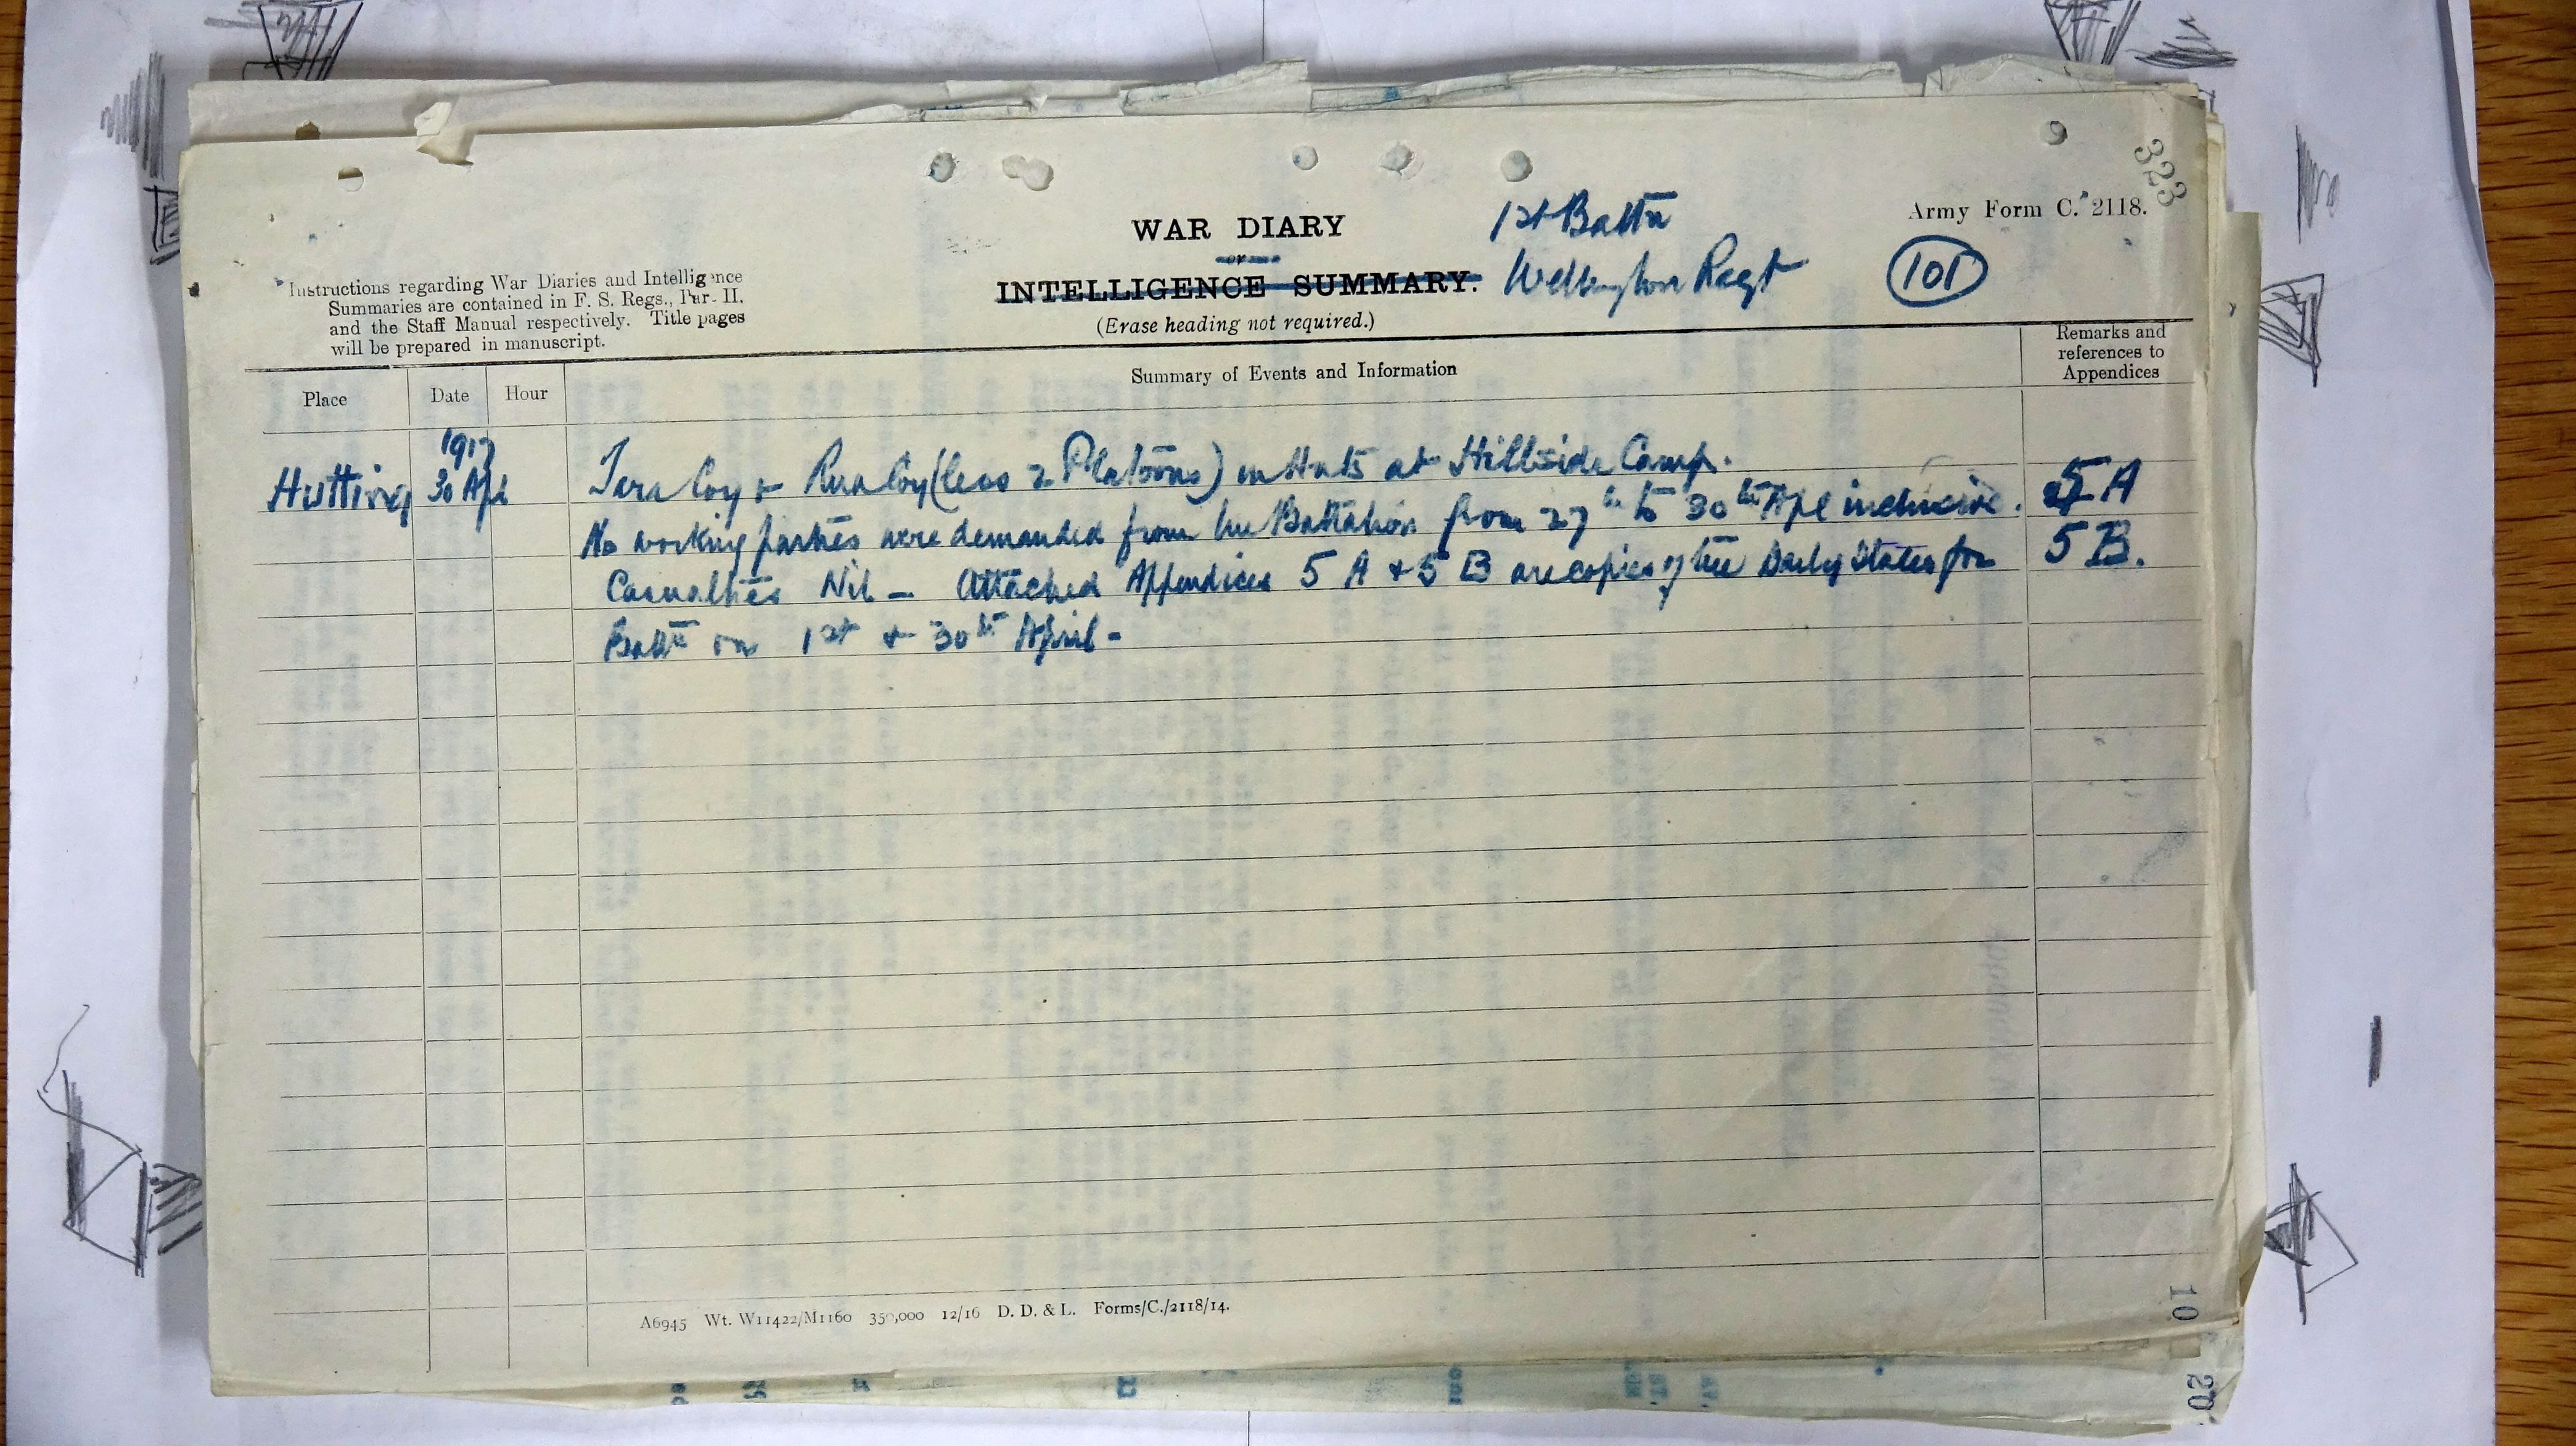 323
Army Form C. 2118.
WAR DIARY
or
INTELLIGENCE SUMMARY.
(Erase heading not required.)
1st Battn
Wellington Regt
101
Instructions regarding War Diaries and Intelligence
Summaries are contained in F. S. Regs., Part II.
and the Staff Manual respectively. Title pages
will be prepared in manuscript.
Place Date Hour Summary of Events and Information Remarks and references to Appendices
1917
Hutting 30 Apl Coy & Rua Coy (less 2 Platoons) in Huts at Hillside Camp.
No working parties were demanded from the Battalion from 27th to 30th Apl inclusive. 5A
Casualties Nil – Attached Appendices 5 A & 5 B are copies of the Daily States for 5 B.
Battn on 1st & 30th April –
A6945 Wt. W11422/M1160 350,000 12/16 D. D. & L. Forms/C./2118/14.
10
20